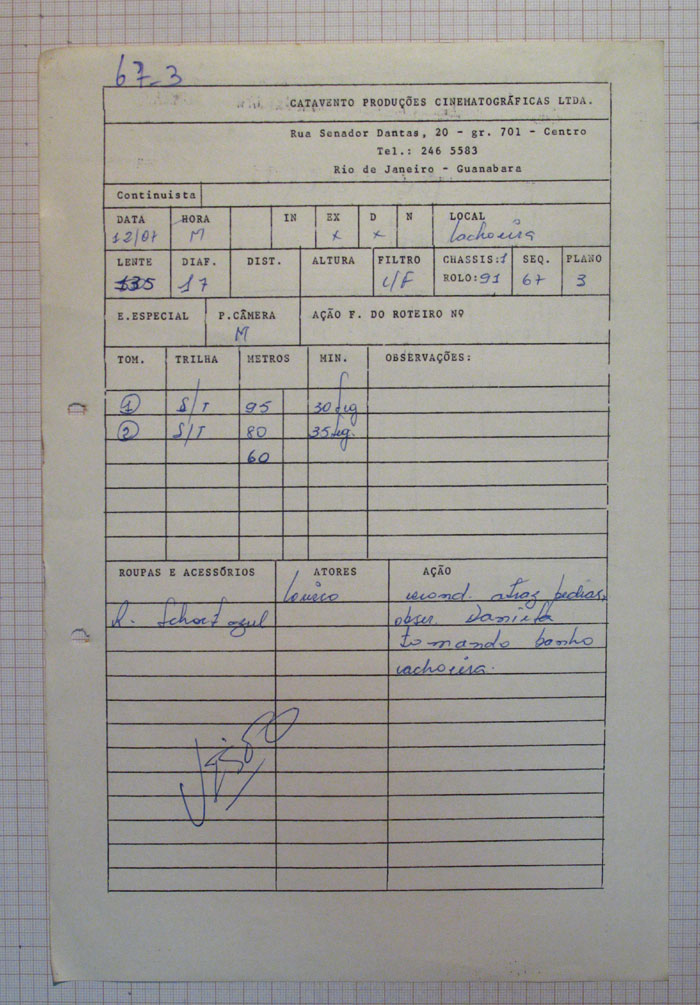 67-3
CATAVENTO PRODUÇÕES CINEMATOGRÁFICAS LTDA.
Rua Senador Dantas, 20 - gr. 701 - Centro
Tel.: 246 5583
Rio de Janeiro - Guanabara
Continuista
DATA HORA IN EX D N LOCAL
12/07 M x x Cachoeira
LENTE DIAF. DIST. ALTURA FILTRO CHASSIS:1 SEQ. PLANO
135 17 C/F ROLO:91 67 3
E.ESPECIAL P.CÂMERA AÇÃO F. DO ROTEIRO Nº
M
TOM. TRILHA METROS MIN. OBSERVAÇÕES:
1 S/T 95 30 seg
2 S/T 80 35 seg.
60
ROUPAS E ACESSÓRIOS ATORES AÇÃO
escond. atraz pedras,
short azul obser. Daniela
tomando banho
cachoeira.